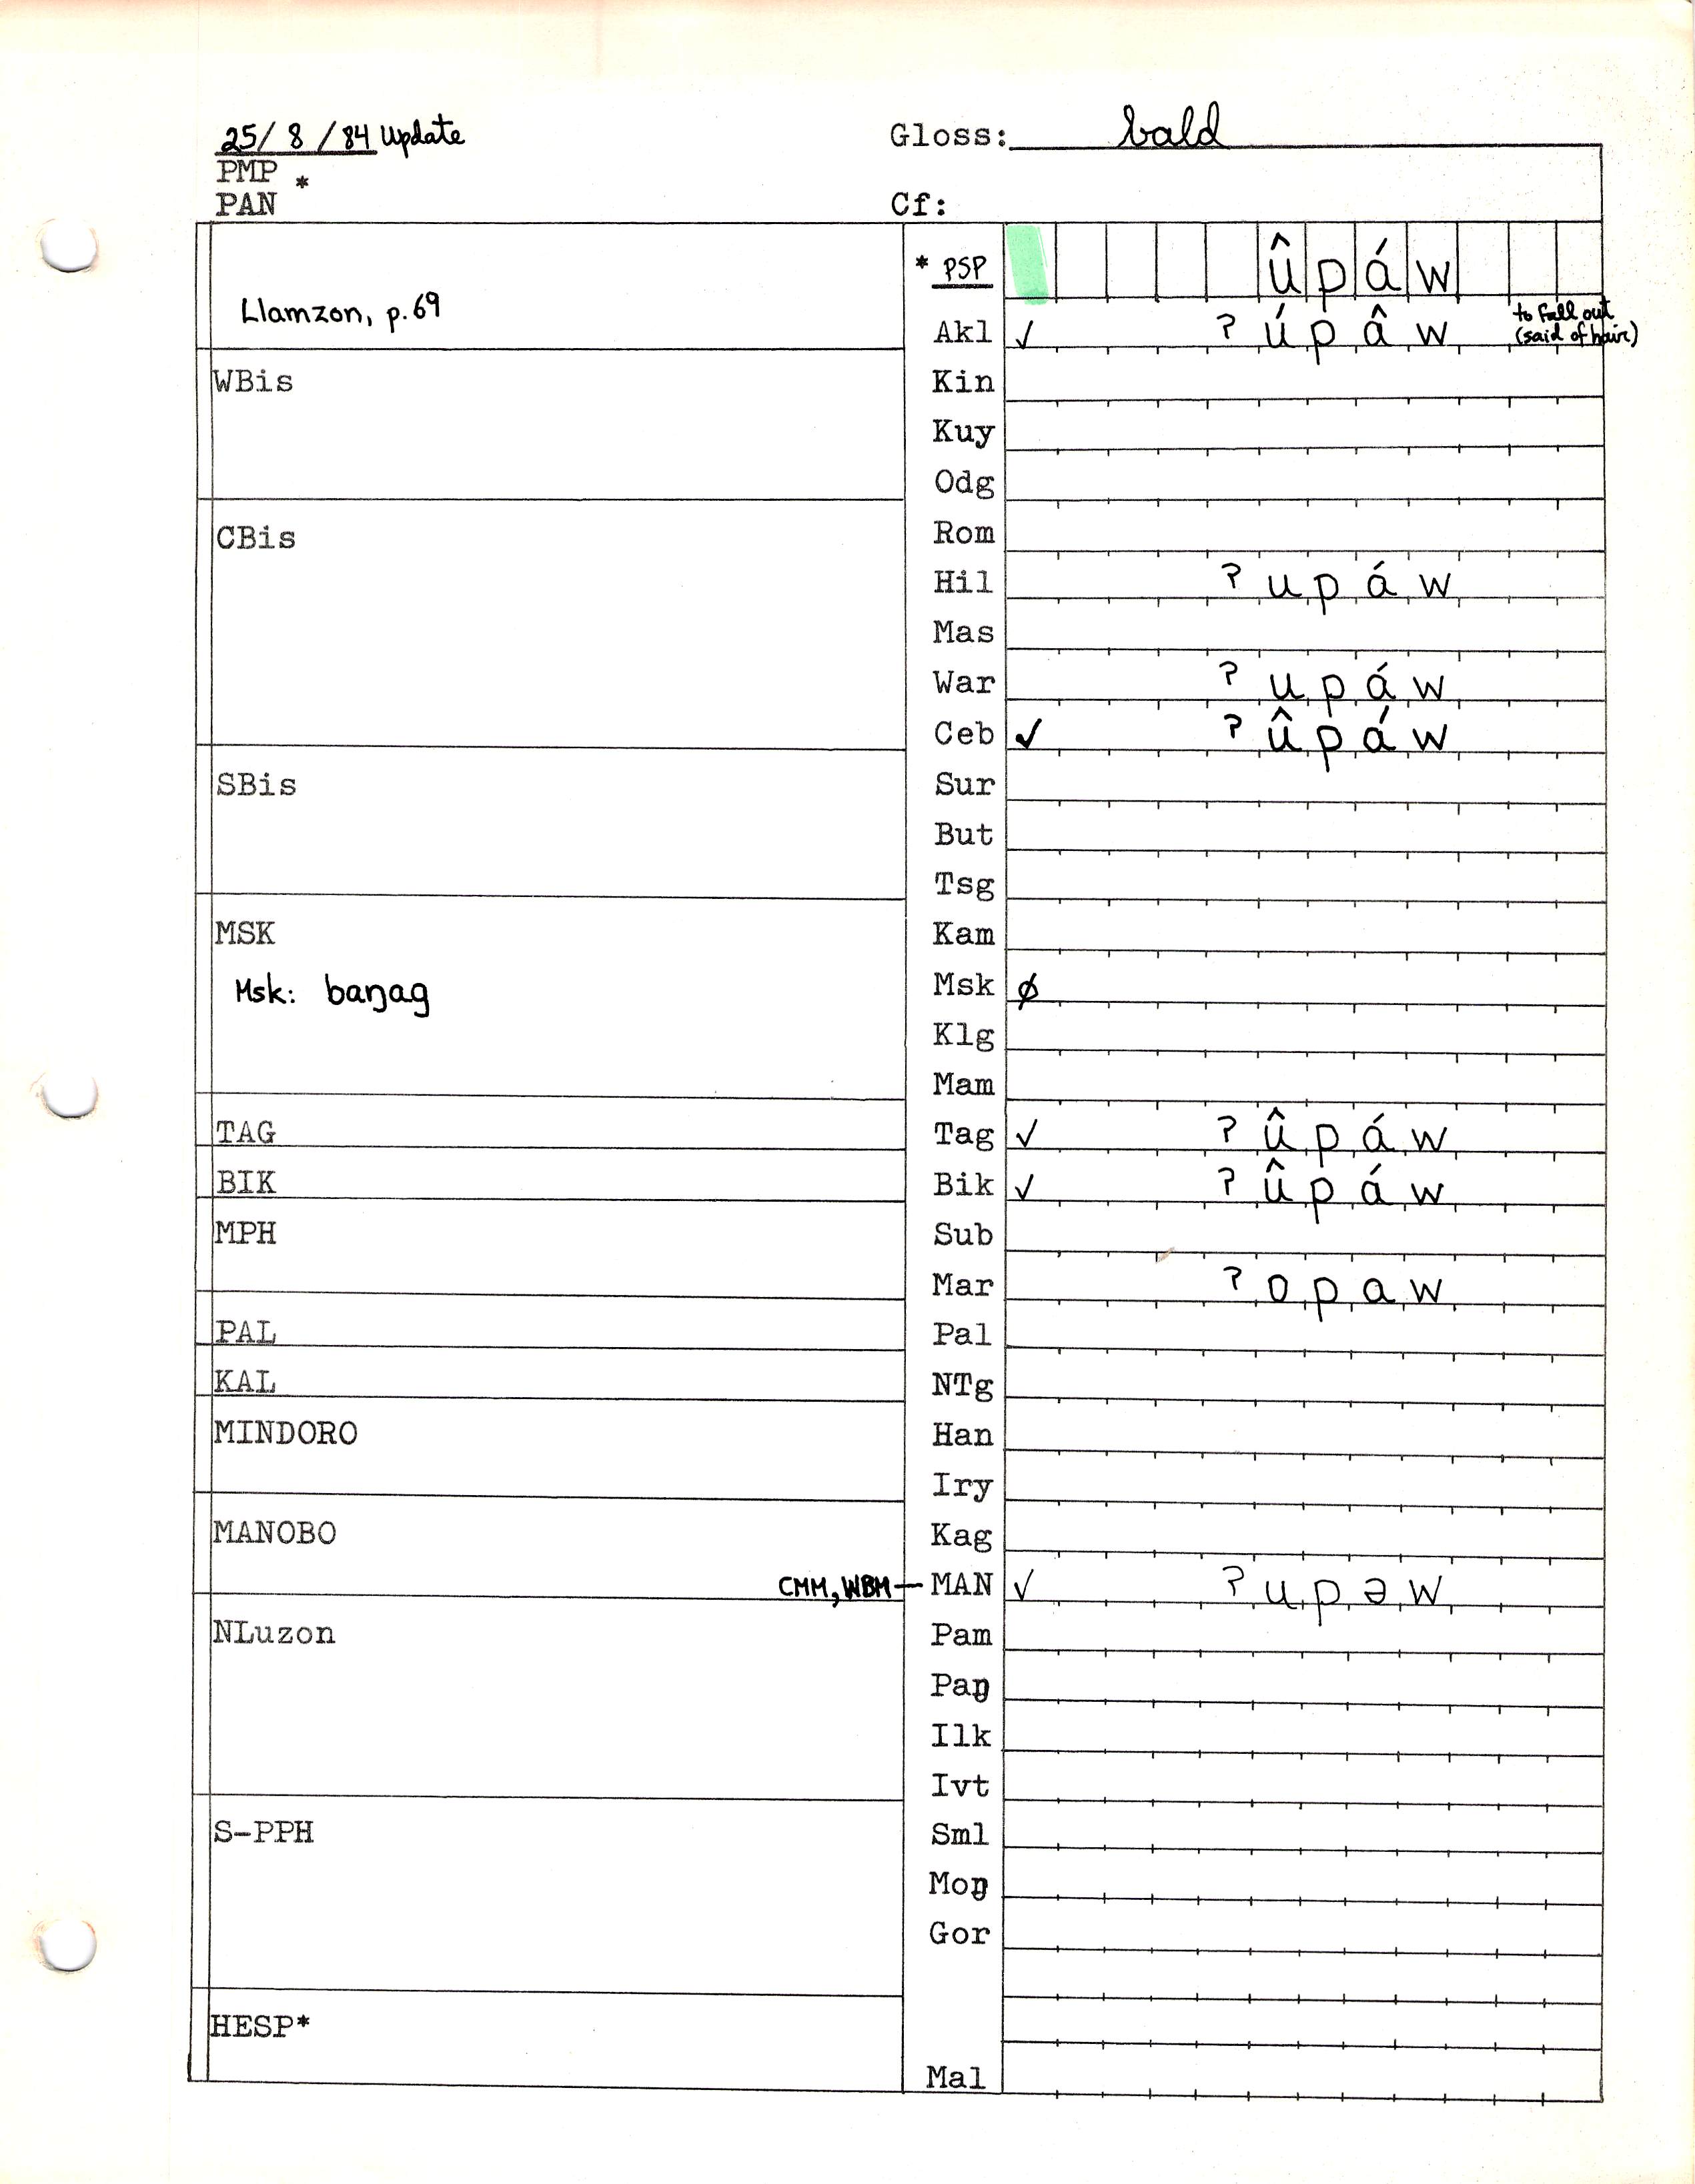 25/ 8 /84 Update
Gloss: bald
PMP
PAN *
Cf:
Llamzon, p.69
* PSP û p á w
Akl ✓ ʔ ú p â w to fall out (said of hair)
WBis
Kin
Kuy
Odg
CBis
Rom
Hil ʔ u p á w
Mas
War ʔ u p á w
Ceb ✓ ʔ û p á w
SBis
Sur
But
Tsg
MSK
Kam
Msk: baŋag
Msk ∅
Klg
Mam
TAG
Tag ✓ ʔ û p á w
BIK
Bik ✓ ʔ û p á w
MPH
Sub
Mar ʔ o p a w
PAL
Pal
KAL
NTg
MINDORO
Han
Iry
MANOBO
Kag
CMM, WBM — MAN ✓ ʔ u p ə w
NLuzon
Pam
Paŋ
Ilk
Ivt
S-PPH
Sml
Moŋ
Gor
HESP*
Mal